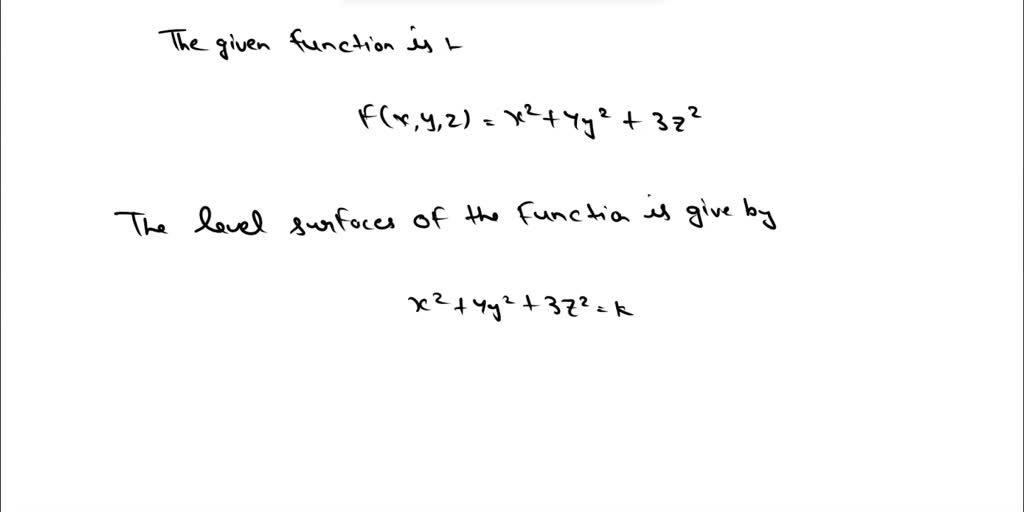 The given function is :-
F(x,y,z) = x² + 4y² + 3z²
The level surfaces of the function is give by
x² + 4y² + 3z² = k